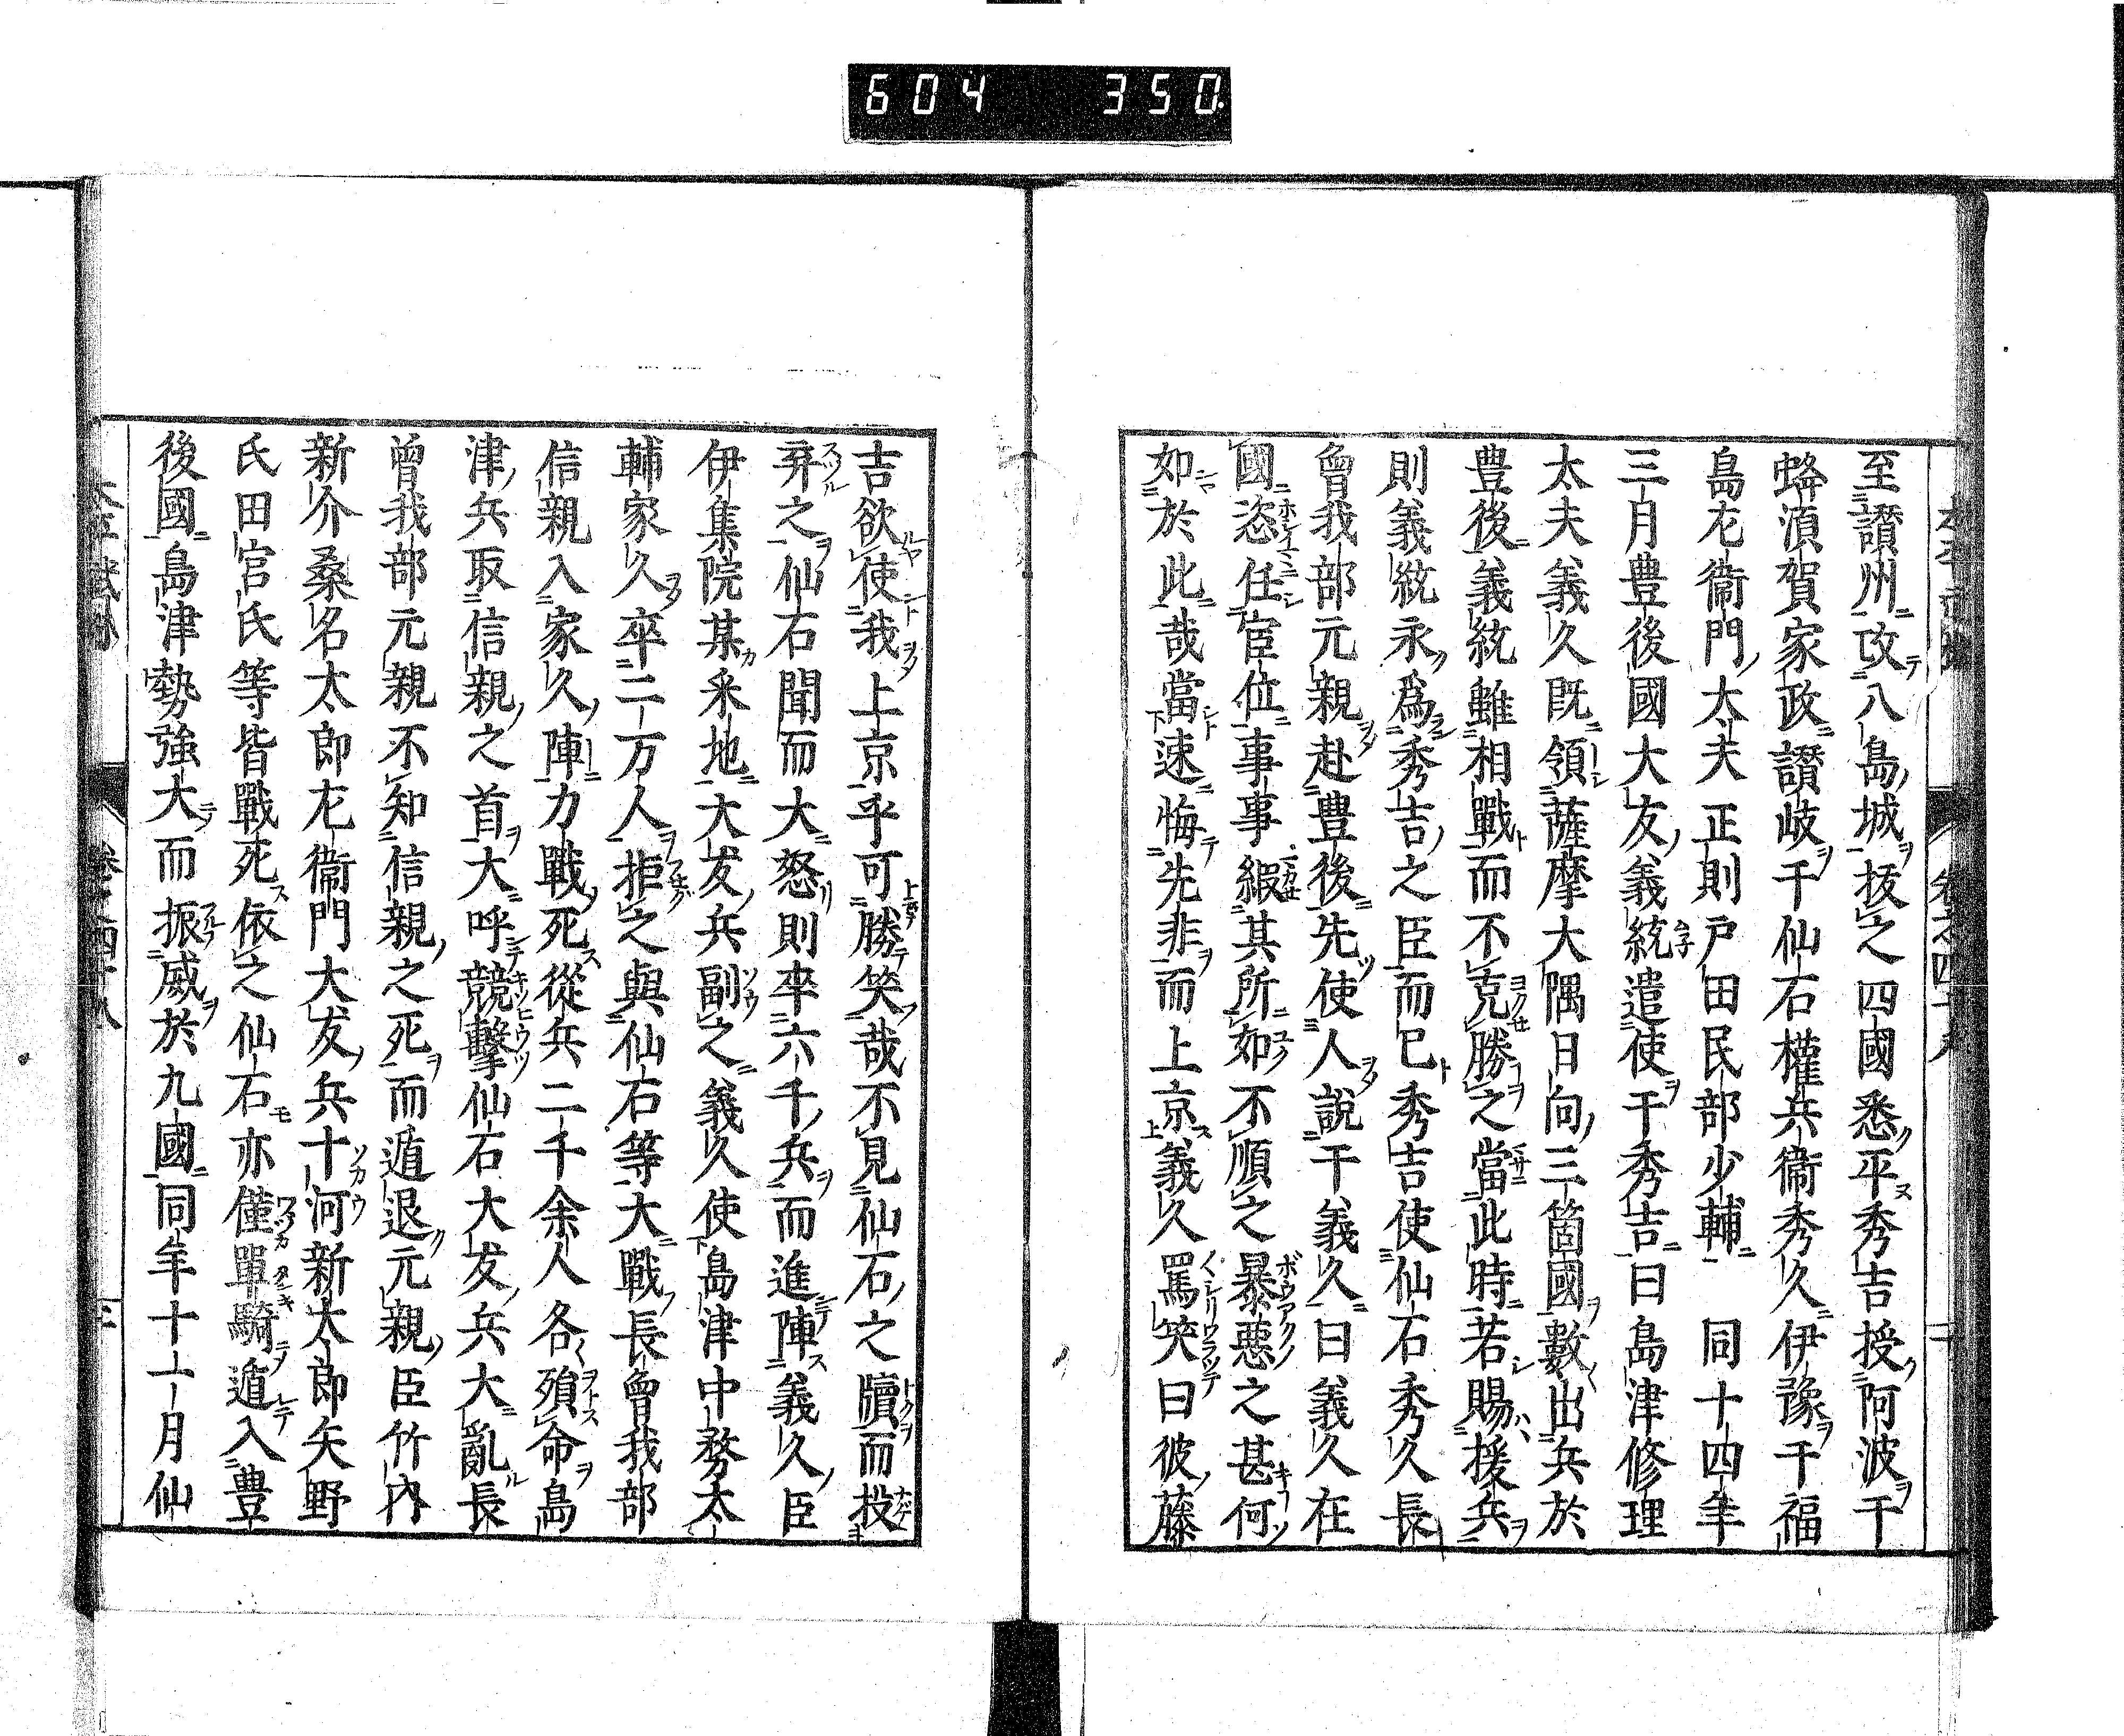 604 350
至讃州攻八島城抜之四國悉平秀吉授阿波于
蜂須賀家政讃岐于仙石權兵衞秀久伊豫于福
島左衞門大夫正則戸田民部少輔 同十四年
三月豊後國大友義統遣使于秀吉曰島津修理
太夫義久既領薩摩大隅日向三箇國數出兵於
豊後義統雖相戰而不克勝之當此時若賜援兵
則義統永爲秀吉之臣而已秀吉使仙石秀久長
曾我部元親赴豊後先使人説于義久曰義久在
國恣任宦位事事緞其所如不順之暴惡之甚何
如於此哉當速悔先非而上京義久罵笑曰彼藤
吉欲使我上京乎可勝笑哉不見仙石之牘而投
弃之仙石聞而大怒則率六千兵而進陣義久臣
伊集院某釆地大友兵副之義久使島津中務太
輔家久卒二万人拒之與仙石等大戰長曾我部
信親入家久陣力戰死從兵二千余人各殞命島
津兵取信親之首大呼競擊仙石大友兵大亂長
曾我部元親不知信親之死而遁退元親臣竹内
新介桑名太郎左衞門大友兵十河新太郎矢野
氏田宮氏等皆戰死依之仙石亦僅單騎遁入豊
後國島津勢強大而振威於九國同年十一月仙